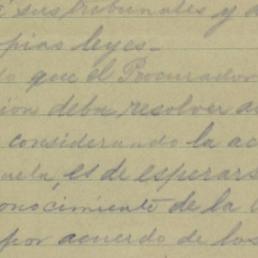 sus tribunales y
opias leyes.-
que el Procurador
ion deba resolver
considerando la ac
uela, es de esperars
onocimiento de la
por acuerdo de los